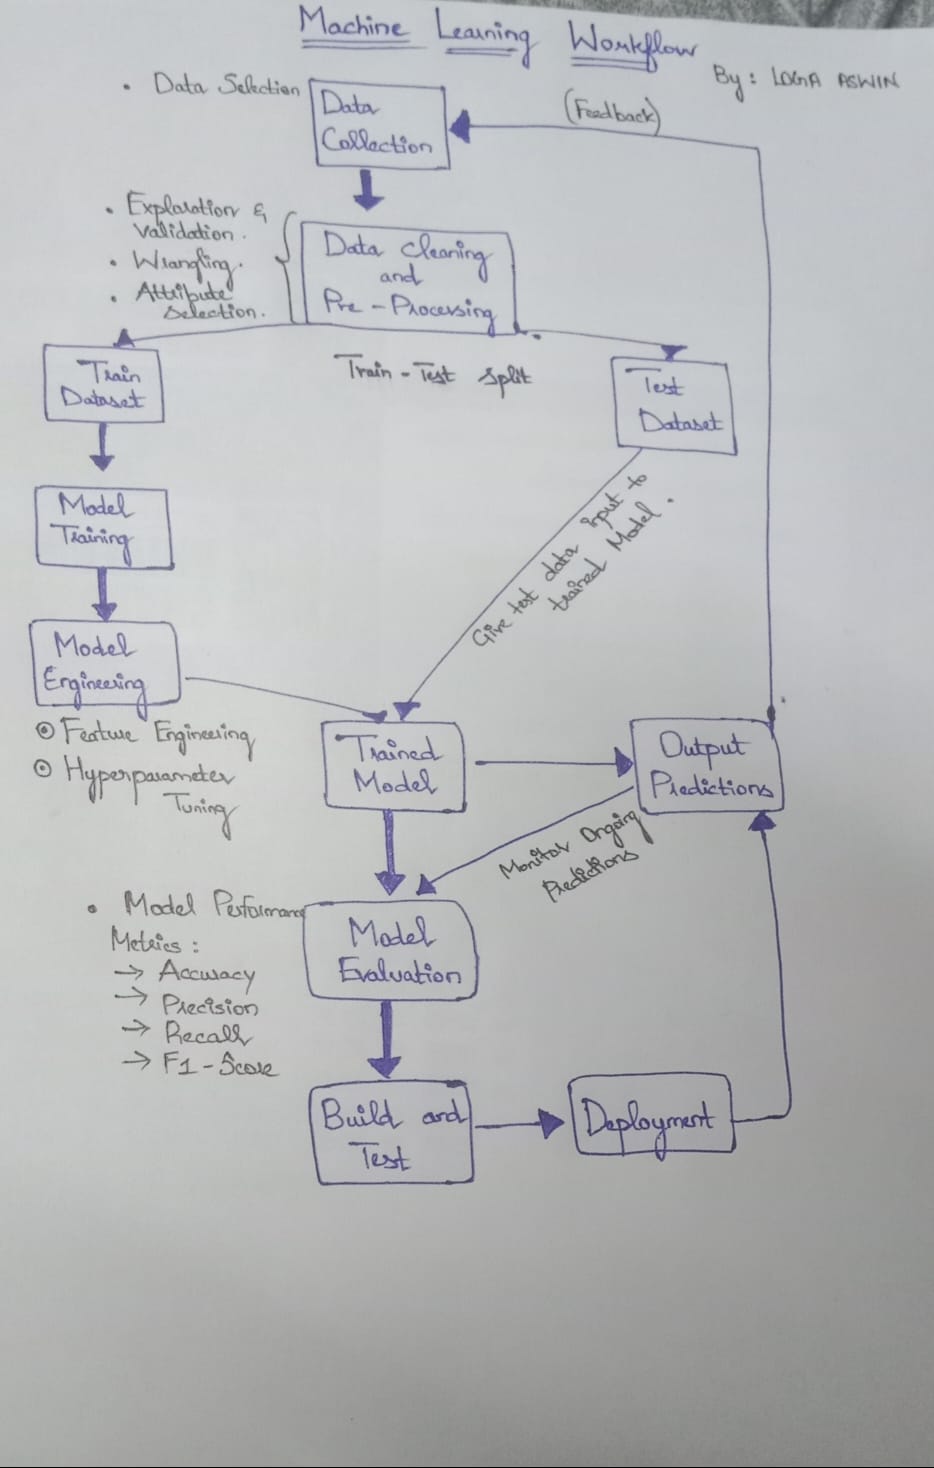 Machine Learning Workflow
By: LOGA ASWIN
• Data Selection
Data
Collection
(Feedback)
• Exploration &
Validation.
• Wrangling.
• Attribute
Selection.
Data Cleaning
and
Pre-Processing
Train
Dataset
Train-Test Split
Test
Dataset
Model
Training
Give test data input to
trained Model.
Model
Engineering
Feature Engineering
Hyperparameter
Tuning
Trained
Model
Output
Predictions
Monitor Ongoing
Predictions
• Model Performance
Metrics:
→ Accuracy
→ Precision
→ Recall
→ F1-Score
Model
Evaluation
Build and
Test
Deployment